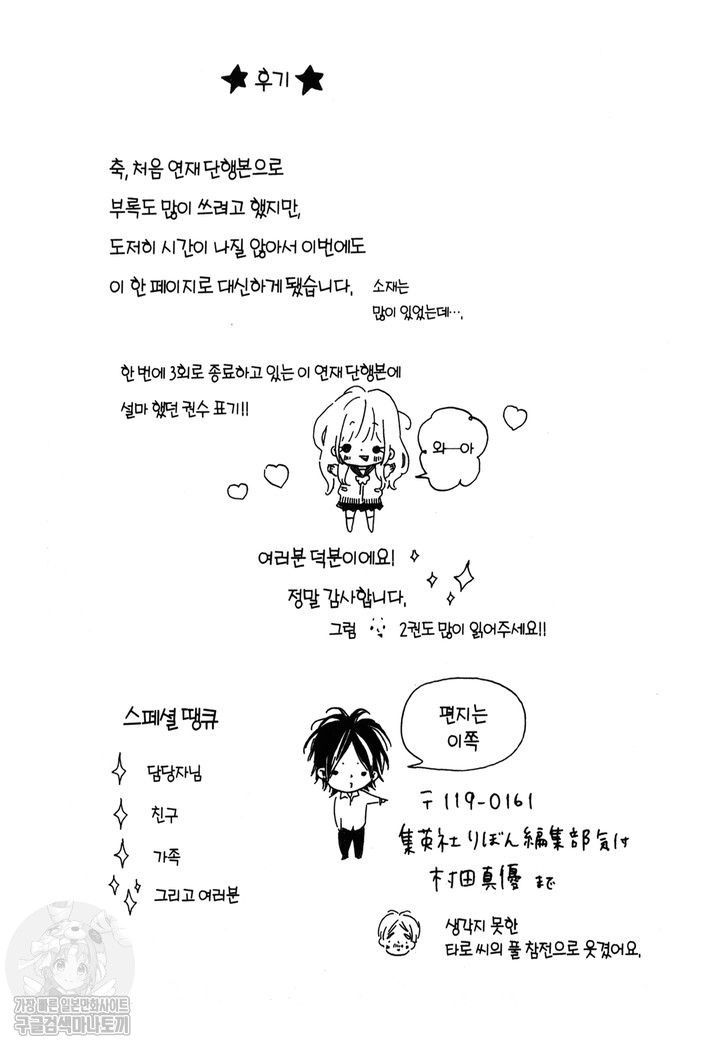 ★ 후기 ★
축, 처음 연재 단행본으로
부록도 많이 쓰려고 했지만,
도저히 시간이 나질 않아서 이번에도
이 한 페이지로 대신하게 됐습니다.
소재는
많이 있었는데….
한 번에 3회로 종료하고 있는 이 연재 단행본에
설마 했던 권수 표기!!
와―아
여러분 덕분이에요!
정말 감사합니다.
그럼 2권도 많이 읽어주세요!!
스페셜 땡큐
담당자님
친구
가족
그리고 여러분
편지는
이쪽
〒119-0161
集英社りぼん編集部気付
村田真優まで
생각지 못한
타로 씨의 풀 참전으로 웃겼어요.
가장 빠른 일본만화사이트
구글검색마나토끼